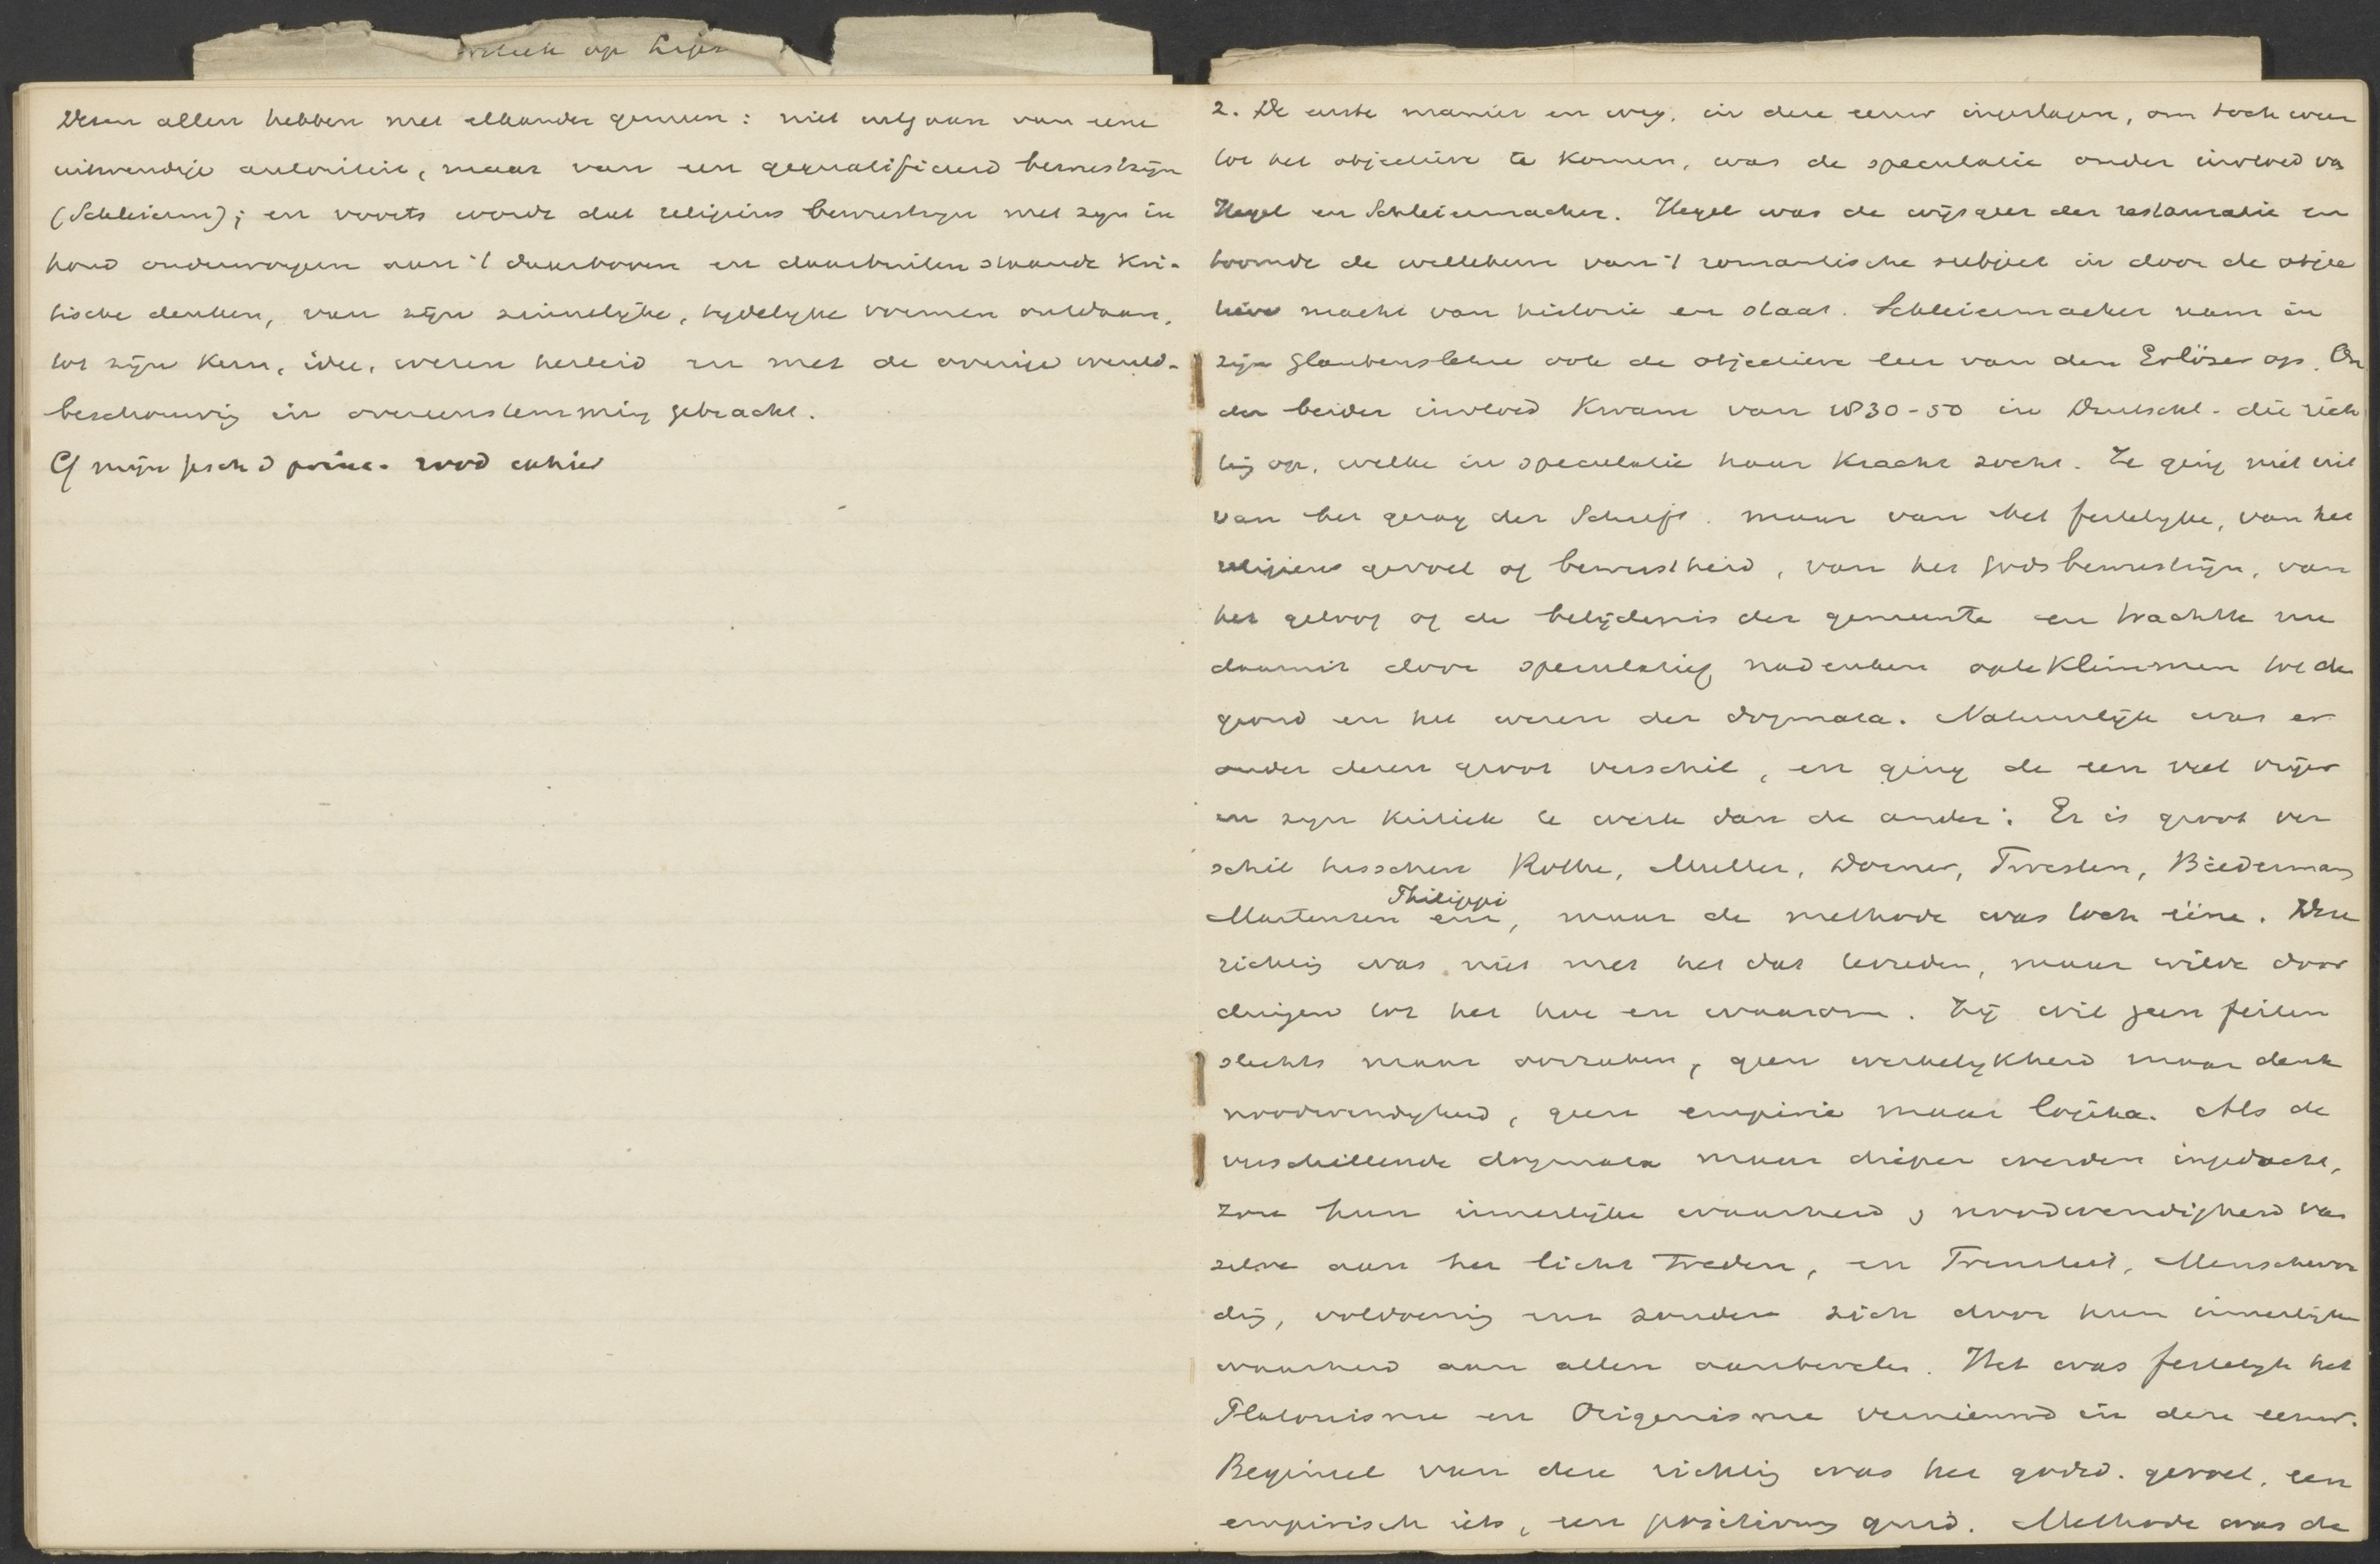 op
Dezen allen hebben met elkander gemeen: niet uitgaan van eene
uitwendige autoriteit, maar van een gequalificeerd bewustzijn
(Schleierm); en voorts wordt dat religieus bewustzijn met zijn in
houd onderworpen aan 't daarboven en daarbuiten staande kri-
tische denken, van zijn zinnelijke, tydelyke vormen ontdaan,
tot zijn kern, idee, wezen herleid en met de overige wereld-
beschouwing in overeenstemming gebracht.
Cf mijn gesch d princ. rood cahier
2. De eerste manier en weg, in deze eeuw ingeslagen, om toch weer
tot het objectieve te komen, was de speculatie onder invloed van
Hegel en Schleiermacher. Hegel was de wijsgeer der restauratie en
toomde de willekeur van 't romantische subject in door de objec
tieve macht van historie en staat. Schleiermacher nam in
zijn Glaubenslehre ook de objectieve leer van den Erlöser op. On
der beider invloed kwam van 1830-50 in Duitschl. die rich
ting op, welke in speculatie haar kracht zocht. Ze ging niet uit
van het gezag der Schrift. maar van het feitelyke, van het
religieus gevoel of bewustheid, van het godsbewustzijn, van
het geloof of de belijdenis der gemeente en trachtte nu
daaruit door speculatief nadenken opteklimmen tot de
grond en het wezen der dogmata. Natuurlijk was er
onder dezen groot verschil, en ging de een veel vrijer
en zijn kritiek te werk dan de ander: Er is groot ver
schil tusschen Rothe, Muller, Dorner, Twesten, Biederman
Philippi
Martensen enz, maar de methode was toch ééne. Deze
richting was niet met het dat tevreden, maar wilde door
dringen tot het hoe en waarom. Zij wil geen feiten
slechts maar oorzaken, geen werkelykheid maar denk
noodwendigheid, geen empirie maar logika. Als de
verschillende dogmata maar dieper werden ingedacht,
zou hun innerlijke waarheid & noodwendigheid van
zelve aan het licht treden, en Triniteit, Menschwor
ding, voldoening enz zouden zich door hun innerlijke
waarheid aan allen aanbevelen. Het was feitelyk het
Platonisme en Origenisme vernieuwd in deze eeuw.
Beginsel van deze richting was het godsd. gevoel, een
empirisch iets, een positivum quid. Methode was de